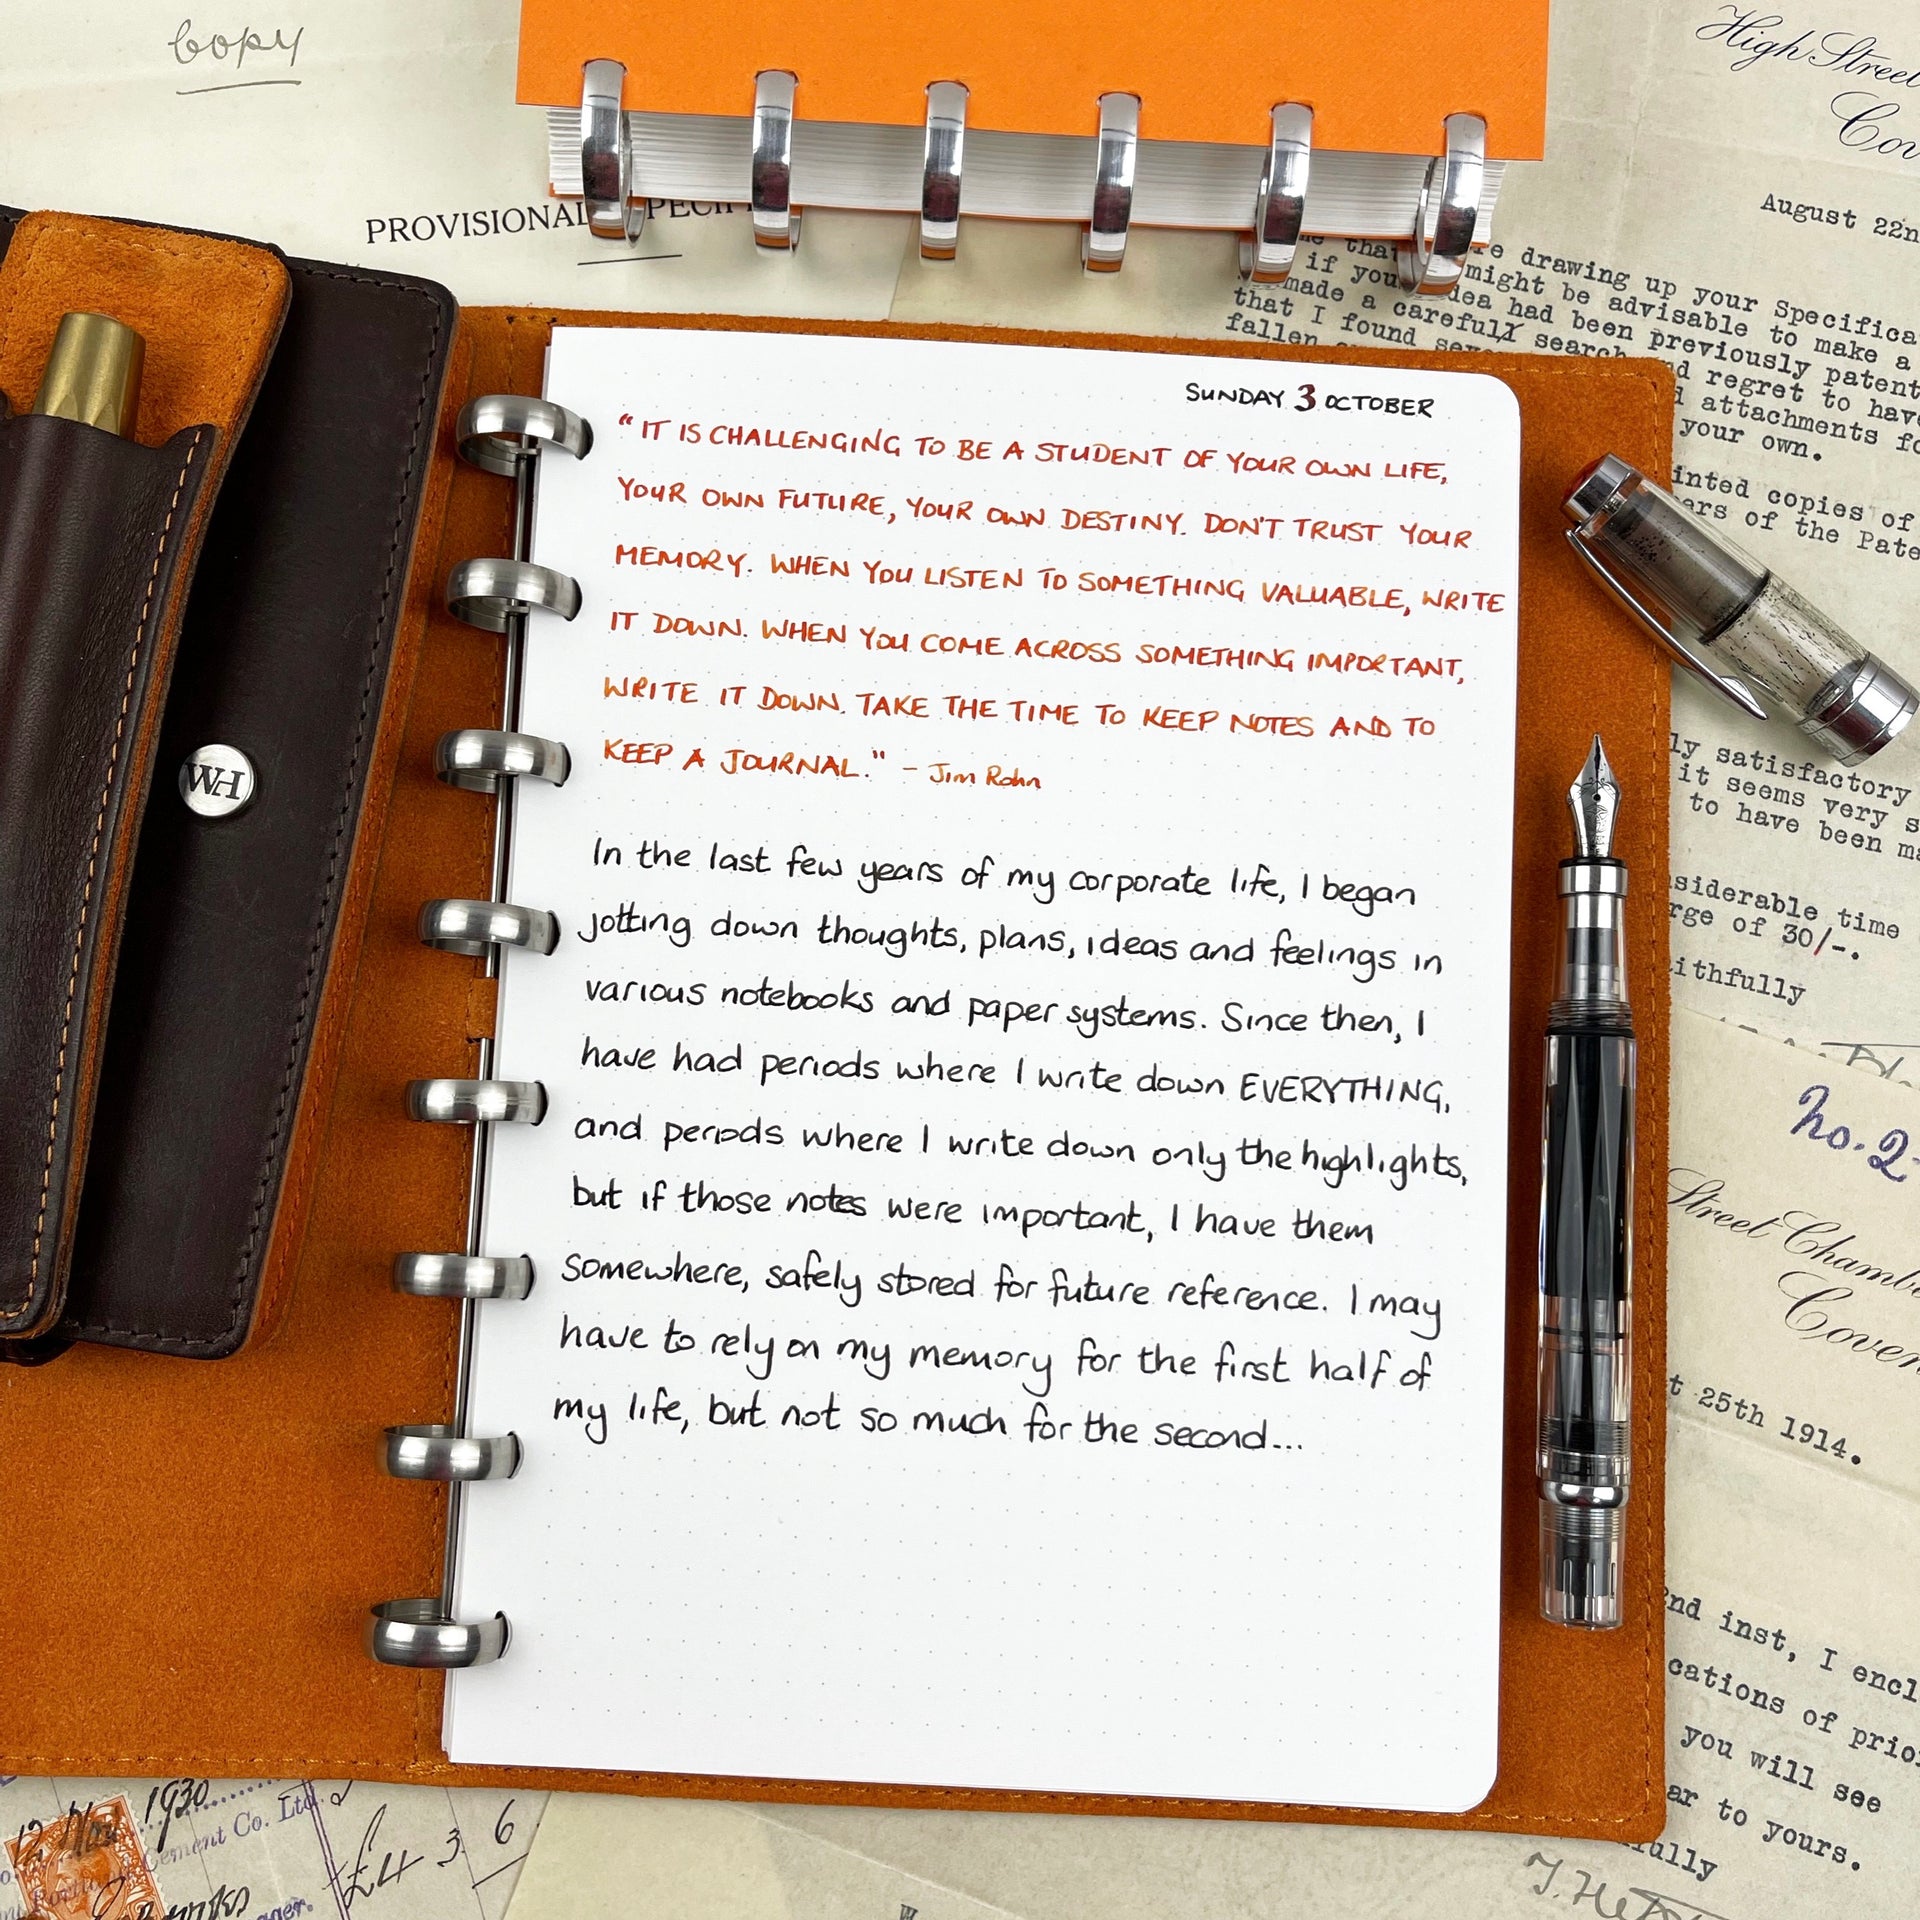 copy
PROVISIONAL
High Street
August 22n
drawing up your Specifica
if you might be advisable to make a
made a carefully search idea had been previously patent
that I found and regret to have
fallen attachments fo
your own.
inted copies of
ers of the Pate
ly satisfactory
it seems very s
to have been ma
siderable time
rge of 30/-.
ithfully
No. 2
Street Chambe
Coven
t 25th 1914.
2nd inst, I encl
cations of prio
you will see
ar to yours.
fully
WH
SUNDAY 3 OCTOBER
"IT IS CHALLENGING TO BE A STUDENT OF YOUR OWN LIFE,
YOUR OWN FUTURE, YOUR OWN DESTINY. DON'T TRUST YOUR
MEMORY. WHEN YOU LISTEN TO SOMETHING VALUABLE, WRITE
IT DOWN. WHEN YOU COME ACROSS SOMETHING IMPORTANT,
WRITE IT DOWN. TAKE THE TIME TO KEEP NOTES AND TO
KEEP A JOURNAL." - Jim Rohn
In the last few years of my corporate life, I began
jotting down thoughts, plans, ideas and feelings in
various notebooks and paper systems. Since then, I
have had periods where I write down EVERYTHING,
and periods where I write down only the highlights,
but if those notes were important, I have them
somewhere, safely stored for future reference. I may
have to rely on my memory for the first half of
my life, but not so much for the second...
12 Nov 1930
Cement Co. Ltd.
£4 3 6